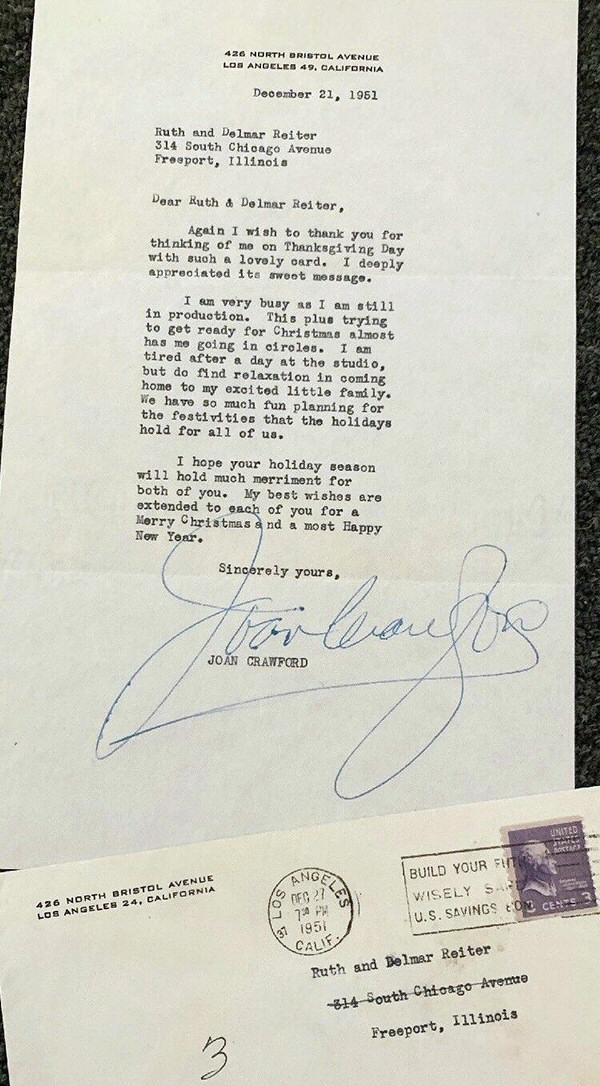 426 NORTH BRISTOL AVENUE
LOS ANGELES 49, CALIFORNIA
December 21, 1951
Ruth and Delmar Reiter
314 South Chicago Avenue
Freeport, Illinois
Dear Ruth & Delmar Reiter,
Again I wish to thank you for
thinking of me on Thanksgiving Day
with such a lovely card. I deeply
appreciated its sweet message.
I am very busy as I am still
in production. This plus trying
to get ready for Christmas almost
has me going in circles. I am
tired after a day at the studio,
but do find relaxation in coming
home to my excited little family.
We have so much fun planning for
the festivities that the holidays
hold for all of us.
I hope your holiday season
will hold much merriment for
both of you. My best wishes are
extended to each of you for a
Merry Christmas and a most Happy
New Year.
Sincerely yours,
Joan Crawford
JOAN CRAWFORD
426 NORTH BRISTOL AVENUE
LOS ANGELES 24, CALIFORNIA
LOS ANGELES
DEC 27
7 30 PM
1951
CALIF.
BUILD YOUR
WISELY
U.S. SAVINGS
UNITED
STATES
POSTAGE
3 CENTS 3
Ruth and Delmar Reiter
314 South Chicago Avenue
Freeport, Illinois
3